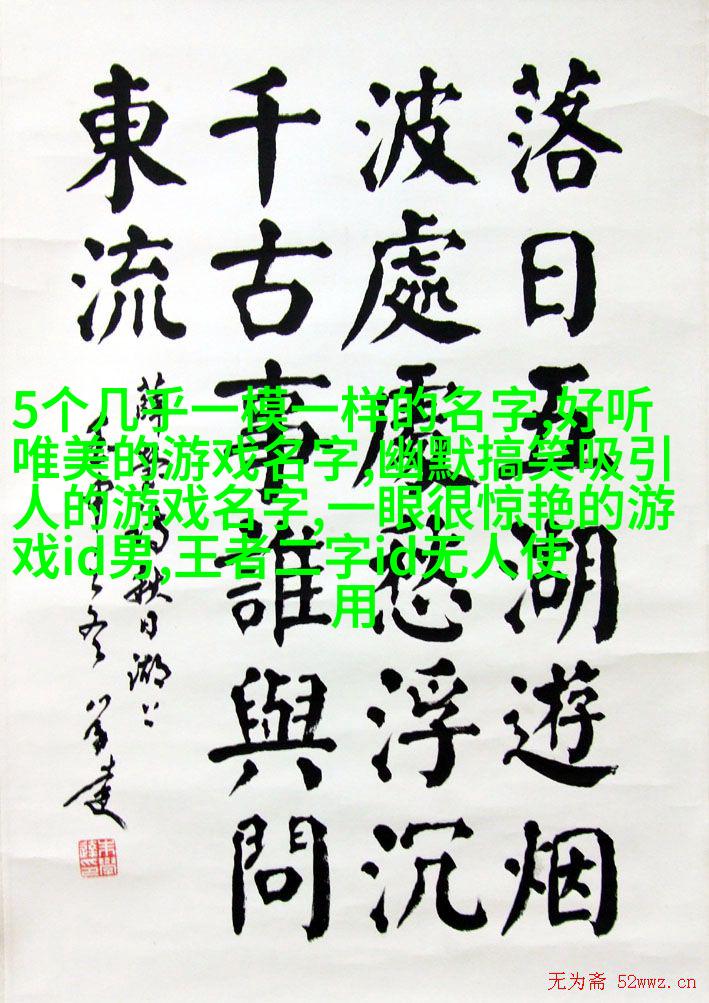 落日五湖遊烟
波處處愁浮沉
千古事誰與問
東流
薛 詩秋日湖上
5个几乎一模一样的名字,好听
唯美的游戏名字,幽默搞笑吸引
人的游戏名字,一眼很惊艳的游
戏id男,王者二字id无人使
用
无为斋 52wwz.cn